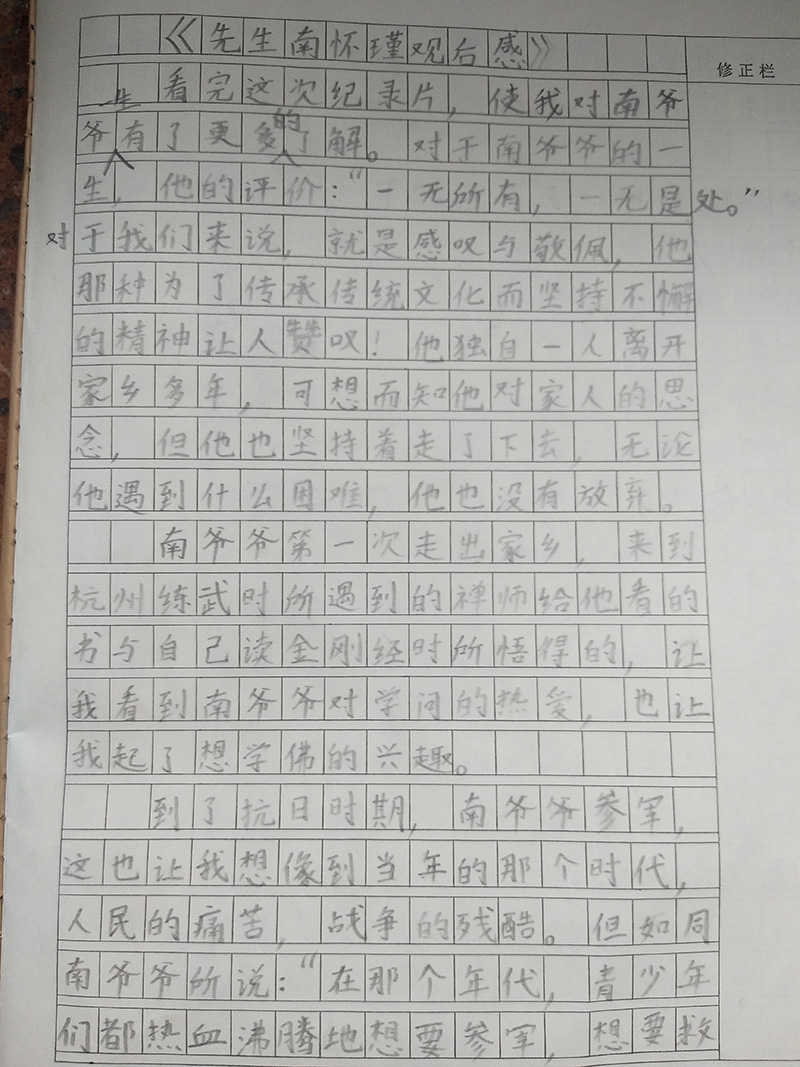 《先生南怀瑾观后感》
修正栏
看完这次纪录片，使我对南爷
一生 的
爷有了更多了解。对于南爷爷的一
生，他的评价：“一无所有，一无是处。”
对于我们来说，就是感叹与敬佩，他
那种为了传承传统文化而坚持不懈
的精神让人赞叹！他独自一人离开
家乡多年，可想而知他对家人的思
念，但他也坚持着走了下去，无论
他遇到什么困难，他也没有放弃。
南爷爷第一次走出家乡，来到
杭州练武时所遇到的禅师给他看的
书与自己读金刚经时所悟得的，让
我看到南爷爷对学问的热爱，也让
我起了想学佛的兴趣。
到了抗日时期，南爷爷参军，
这也让我想像到当年的那个时代，
人民的痛苦，战争的残酷。但如同
南爷爷所说：“在那个年代，青少年
们都热血沸腾地想要参军，想要救